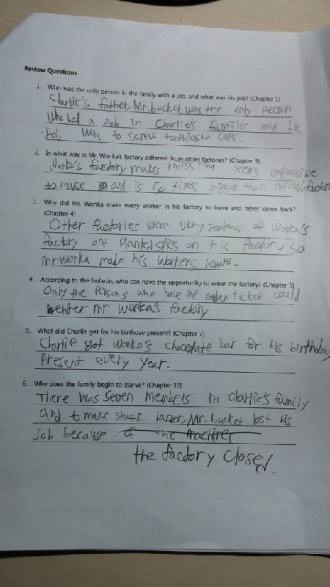 Review Questions
1. Who was the only person in the family with a job, and what was his job? (Chapter 1)
Charlie's father, Mr. bucket was the only person
Who had a Job In Charlie's families and his
Job was to screw toothpaste caps.
2. In what way is Mr. Wonka's factory different from other factories? (Chapter 3)
Wonka's factory makes things that seems impossible
to make and is 50 times bigger than normal factories
3. Why did Mr. Wonka make every worker in his factory to leave and never come back?
(Chapter 4)
Other factories were very jealous of Wonka's
factory and planted spies on his factory so
mr wonka made his workers leave.
4. According to the bulletin, who can have the opportunity to enter the factory? (Chapter 5)
Only the persons who have the golden ticket could
enter mr wonka's factory
5. What did Charlie get for his birthday present? (Chapter 7)
Charlie got wonka's chocolate bar for his birthday
present every year.
6. Why does the family begin to starve? (Chapter 10)
There was seven members in charlie's family
and to make Mr. bucket lost his
job because of the machine
the factory closed.